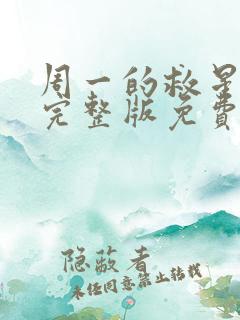 周一的救星
完整版免费
隐蔽者
未经同意禁止转载